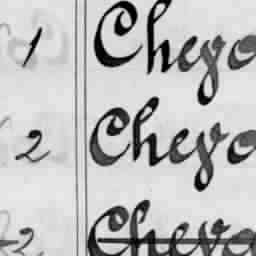 1 Cheyo
2 Cheyo
2 Cheva